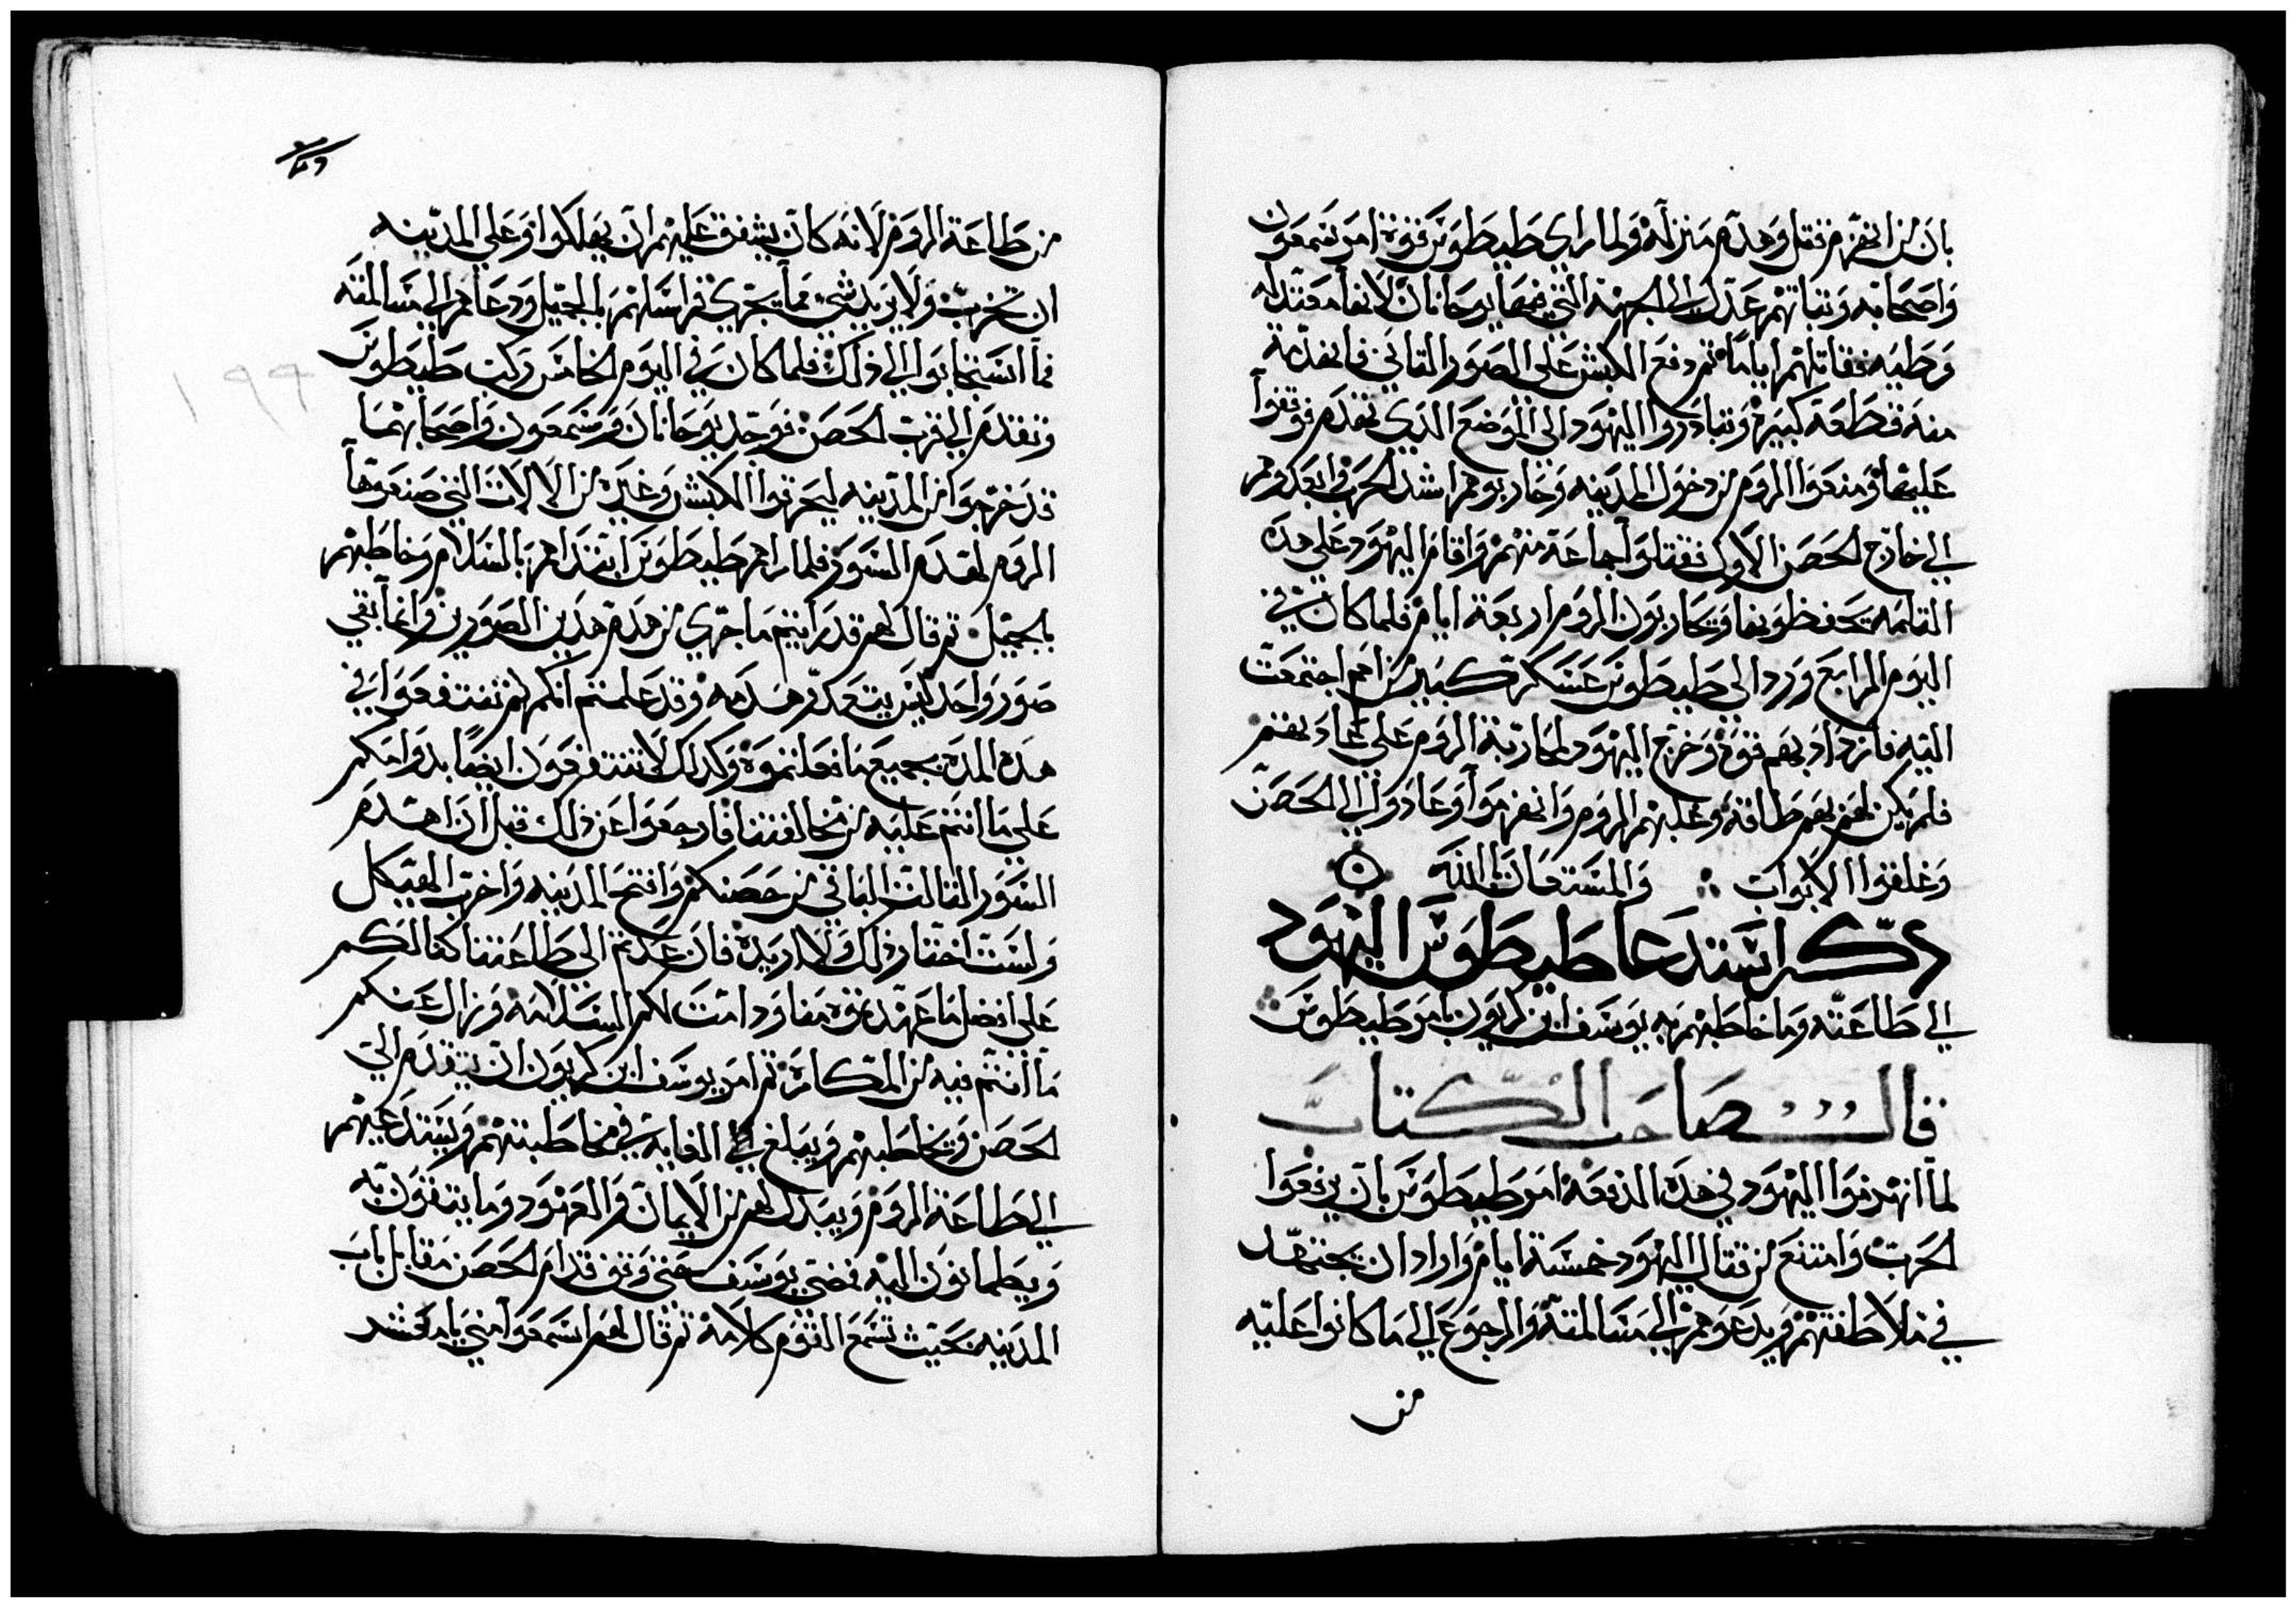 بان من انهزم فقتل وهدم منزله ولما راى طيطوس قوة امر شمعون
واصحابه وثباتهم عدل الى الجهة التي فيها يوحانان لانها معتدله
وطيه فقاتلهم اياما ثم دفع الكبش على الصور الثاني فانهدمة
منه قطعة كبيرة وتبادروا اليهود الى الموضع الذي تهدم فوقفوا
عليها ومنعوا الروم من دخول المدينه وحاربوهم اشد الحرب فابعدوهم
الي خارج الحصن الاول فقتلوا جماعة منهم واقام اليهود على هده
الثلمة يحفظونها ويحاربون الروم اربعة ايام فلما كان في
اليوم الرابع ورد الى طيطوس عسكر كبير من امم اجتمعت
اليه فازداد بهم قوة وخرج اليهود لمحاربة الروم على عادتهم
فلم يكن لهم بهم طاقة وغلبهم الروم وانهزموا وعادوا الي الحصن
وغلقوا الابوات والمستعان الله
دكر استدعا طيطوس اليهود
الي طاعته وما خاطبهم به يوسف ابن كريون بامر طيطوس
قال صاحب الكتاب
لما انهزموا اليهود في هده الدفعة امر طيطوس بان يرفعوا
الحرب وامتنع من قتال اليهود خمسة ايام واراد ان يجتهد
في ملاطفتهم ويدعوهم الي مسالمته والرجوع الي ما كانوا عليه
من
من طاعة الروم لانه كان يشفق عليهم ان يهلكوا وعلى المدينه
ان تخرب ولا يريد شي مما يجري فراسلهم بالجميل ودعاهم الي مسالمته
فما استجابوا الي ذلك فلما كان في اليوم الخامس ركب طيطوس
وتقدم الي قرب الحصن فوجد يوحانان وشمعون واصحابهما
قد خرجوا من المدينه ليحرقوا الكبش وغيره من الالات التي صنعوها
الروم لهدم السور فلما راهم طيطوس ابتداهم بالسلام وخاطبهم
بالجميل ثم قال لهم قد رايتم ما جري من هدم هدين الصورين وانما بقي
صور واحد ليس يتعدر هدمه وقد علمتم انكم لم تنتفعوا في
هده المده بجميع ما فعلتموه وكدلك لا تنتفعون ايضا بدوامكم
على ما انتم عليه من مخالفتنا فارجعوا عن ذلك قبل ان اهدم
السور الثالث الباقي من حصنكم وافتح المدينه واخرب الهيكل
ولست اختار ذلك ولا اريده فان عدتم الي طاعتنا كنا لكم
على افضل ما عهدتموه منا ودامت لكم السلامه وزال عنكم
ما انتم فيه من المكاره ثم امر يوسف ابن كريون ان يتقدم الي
الحصن ويخاطبهم ويبلغ الغايه في مخاطبتهم ويستدعيهم
الي طاعة الروم ويبدل لهم من الايمان والعهود وما يتقون به
ويطمانون اليه فمضي يوسف حتى وقف قدام الحصن مقابل باب
المدينه بحيث تسمع القوم كلامه ثم قال لهم اسمعوا مني يا معشر
١٩٩